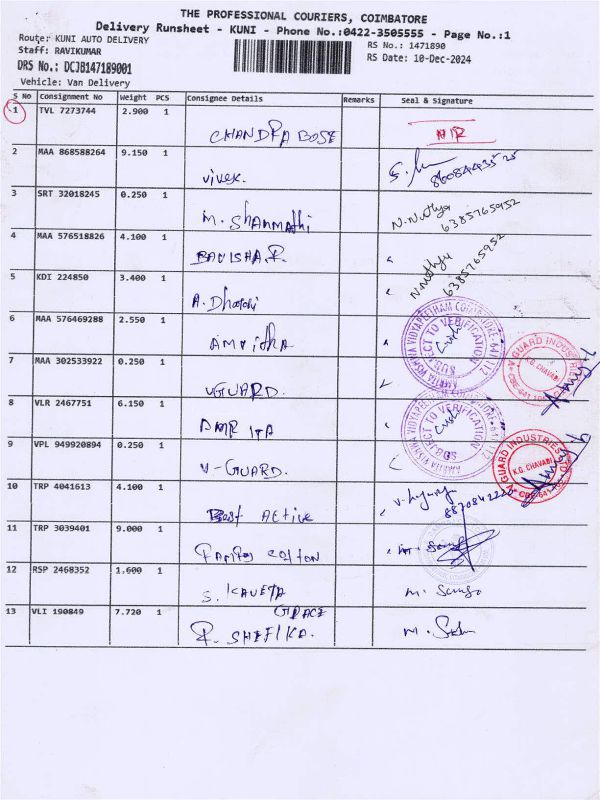 THE PROFESSIONAL COURIERS, COIMBATORE
Delivery Runsheet - KUNI - Phone No.:0422-3505555 - Page No.:1
Route: KUNI AUTO DELIVERY
RS No.: 1471890
Staff: RAVIKUMAR
RS Date: 10-Dec-2024
DRS No.: DCJB147189001
Vehicle: Van Delivery
S No Consignment No Weight PCS Consignee Details Remarks Seal & Signature
1 TVL 7273744 2.900 1 CHANDRA BOSE
2 MAA 868588264 9.150 1 vivek.
3 SRT 32018245 0.250 1 M. Shanmathi N. Nithya 6385765952
4 MAA 576518826 4.100 1 BAVISHA.R. 6385765952
5 KDI 224850 3.400 1 A.
6 MAA 576469288 2.550 1 AMRITHA
7 MAA 302533922 0.250 1 VGUARD.
8 VLR 2467751 6.150 1 AMRITA
9 VPL 949920894 0.250 1 V-GUARD.
10 TRP 4041613 4.100 1 Best Active
11 TRP 3039401 9.000 1 cotton
12 RSP 2468352 1.600 1 S. KAVETA
13 VLI 190849 7.720 1 GRACE
R. SHEFIKA.
AMRITA VISHWA VIDYAPEETHAM COIMBATORE-641 112
SUBJECT TO VERIFICATION
V GUARD INDUSTRIES
K.G. CHAVADI
SUBJECT TO VERIFICATION
V GUARD INDUSTRIES LTD
K.G. CHAVADI